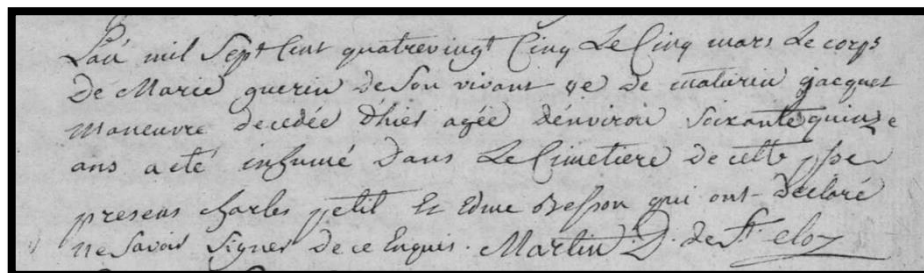 L'an mil Sept Cent quatrevingt Cinq Le Cinq mars Le corps
De Marie guerin de Son vivant ve de maturin jacquet
maneuvre decedée d'hier agée d'environ Soixante quinze
ans a eté inhumé Dans Le Cimetiere de cette psse
presens charles petit Et Edme Besson qui ont declaré
ne Savoir Signer de ce Enquis. Martin D. de St. eloy